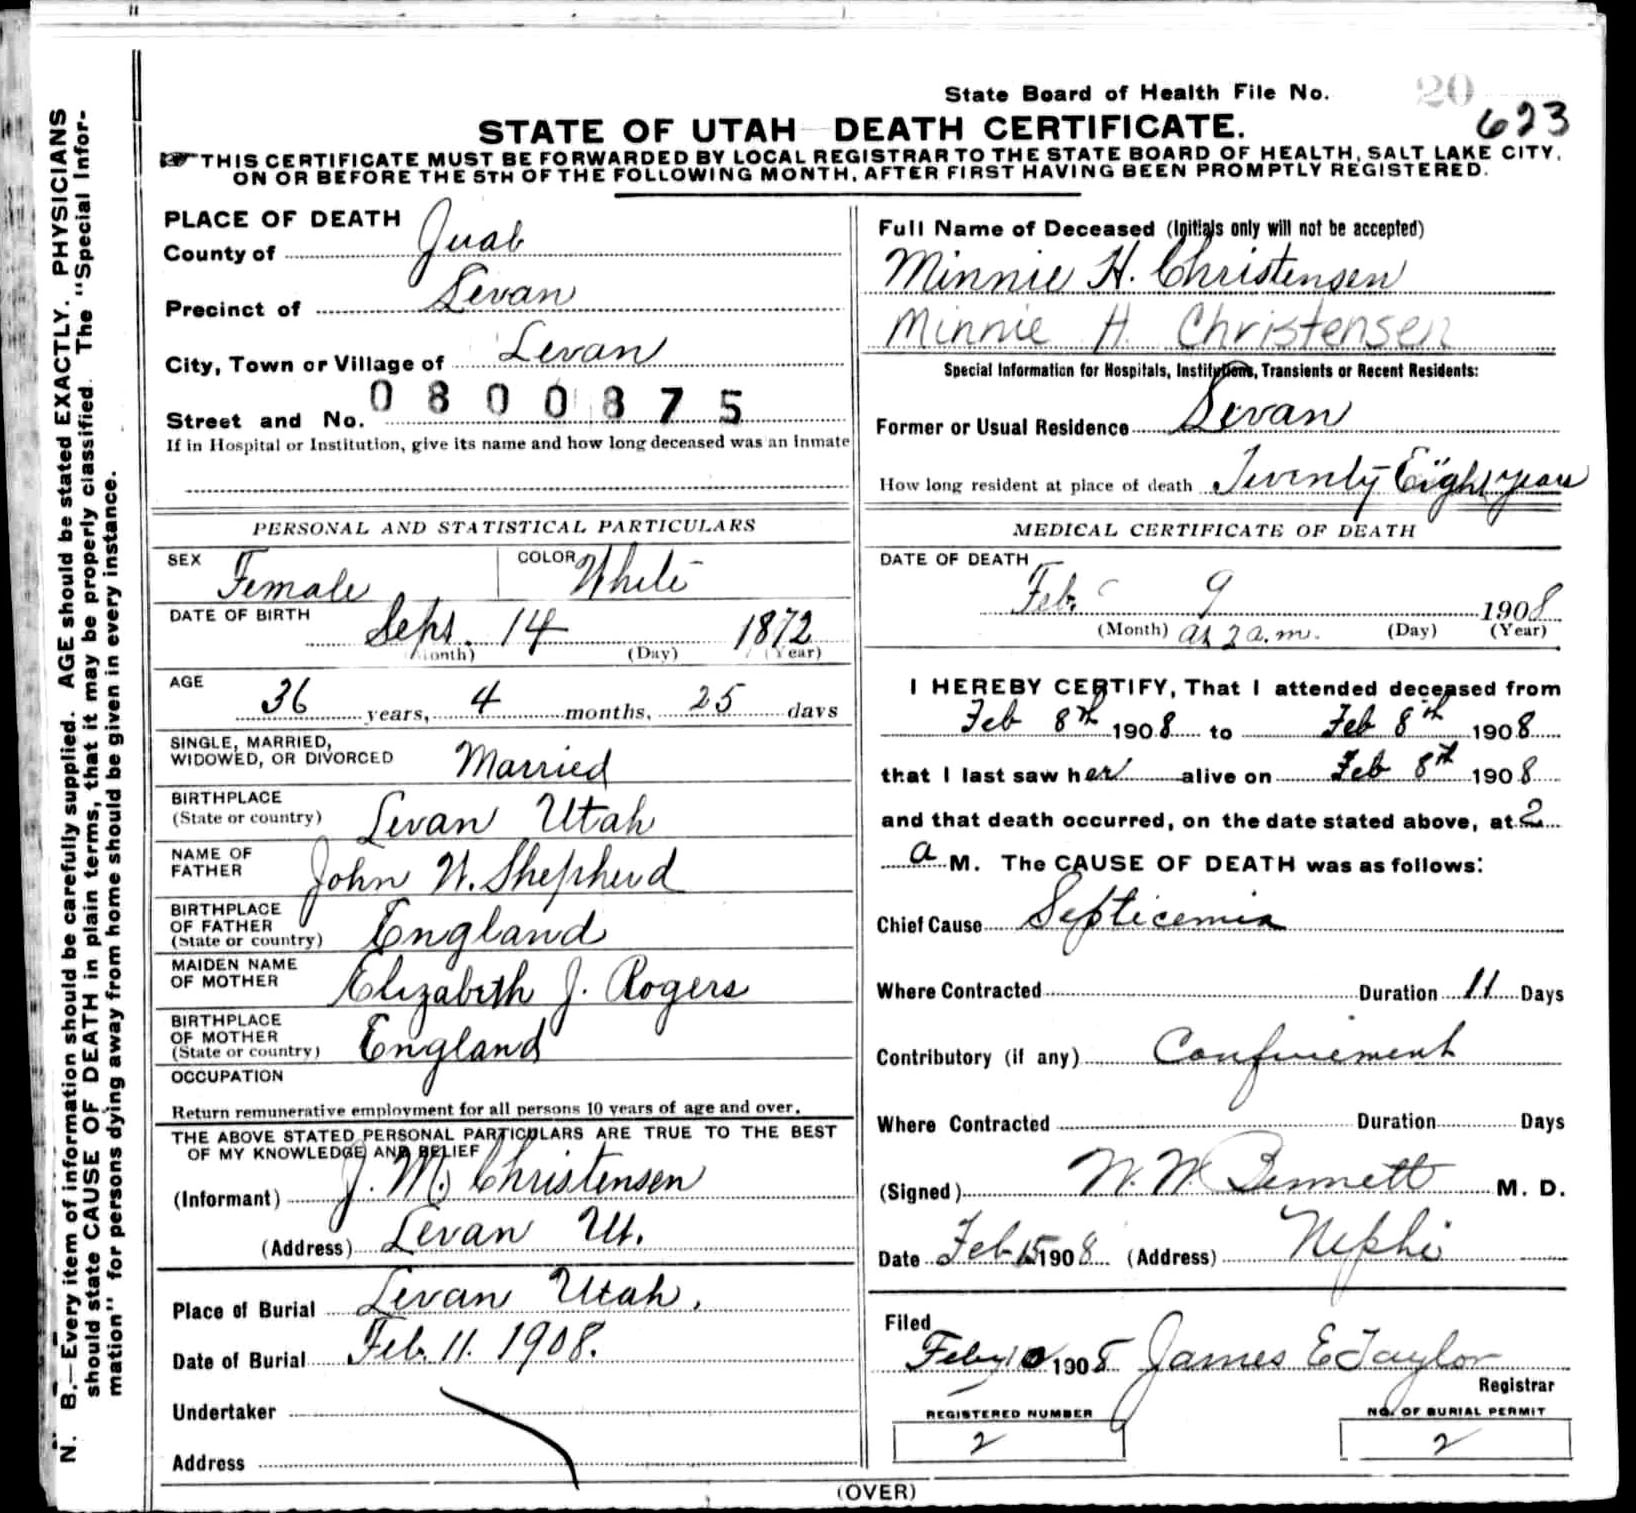 State Board of Health File No. 20
623
STATE OF UTAH DEATH CERTIFICATE.
THIS CERTIFICATE MUST BE FORWARDED BY LOCAL REGISTRAR TO THE STATE BOARD OF HEALTH, SALT LAKE CITY,
ON OR BEFORE THE 5TH OF THE FOLLOWING MONTH, AFTER FIRST HAVING BEEN PROMPTLY REGISTERED.
N. B.—Every item of information should be carefully supplied. AGE should be stated EXACTLY. PHYSICIANS
should state CAUSE OF DEATH in plain terms, that it may be properly classified. The "Special Infor-
mation" for persons dying away from home should be given in every instance.
PLACE OF DEATH
County of Juab
Precinct of Levan
City, Town or Village of Levan
Street and No. 0800875
If in Hospital or Institution, give its name and how long deceased was an Inmate
PERSONAL AND STATISTICAL PARTICULARS
SEX Female COLOR White
DATE OF BIRTH Sept. 14 1872
(Month) (Day) (Year)
AGE 36 years, 4 months, 25 days
SINGLE, MARRIED,
WIDOWED, OR DIVORCED Married
BIRTHPLACE
(State or country) Levan Utah
NAME OF
FATHER John W. Shepherd
BIRTHPLACE
OF FATHER
(State or country) England
MAIDEN NAME
OF MOTHER Elizabeth J. Rogers
BIRTHPLACE
OF MOTHER
(State or country) England
OCCUPATION
Return remunerative employment for all persons 10 years of age and over.
THE ABOVE STATED PERSONAL PARTICULARS ARE TRUE TO THE BEST
OF MY KNOWLEDGE AND BELIEF
(Informant) J. M. Christensen
(Address) Levan Ut.
Place of Burial Levan Utah.
Date of Burial Feb. 11. 1908.
Undertaker
Address
Full Name of Deceased (Initials only will not be accepted)
Minnie H. Christensen
Minnie H. Christensen
Special Information for Hospitals, Institutions, Transients or Recent Residents:
Former or Usual Residence Levan
How long resident at place of death Twenty Eight years
MEDICAL CERTIFICATE OF DEATH
DATE OF DEATH
Feb. 9 1908
(Month) at 2 a.m. (Day) (Year)
I HEREBY CERTIFY, That I attended deceased from
Feb 8th 1908 to Feb 8th 1908
that I last saw her alive on Feb 8th 1908
and that death occurred, on the date stated above, at 2
a M. The CAUSE OF DEATH was as follows:
Chief Cause Septicemia
Where Contracted Duration 11 Days
Contributory (if any) Confinement
Where Contracted Duration Days
(Signed) W. W. Bennett M. D.
Date Feb 15 1908 (Address) Nephi
Filed
Feby 10 1908 James E Taylor
Registrar
REGISTERED NUMBER
2
NO. OF BURIAL PERMIT
2
(OVER)